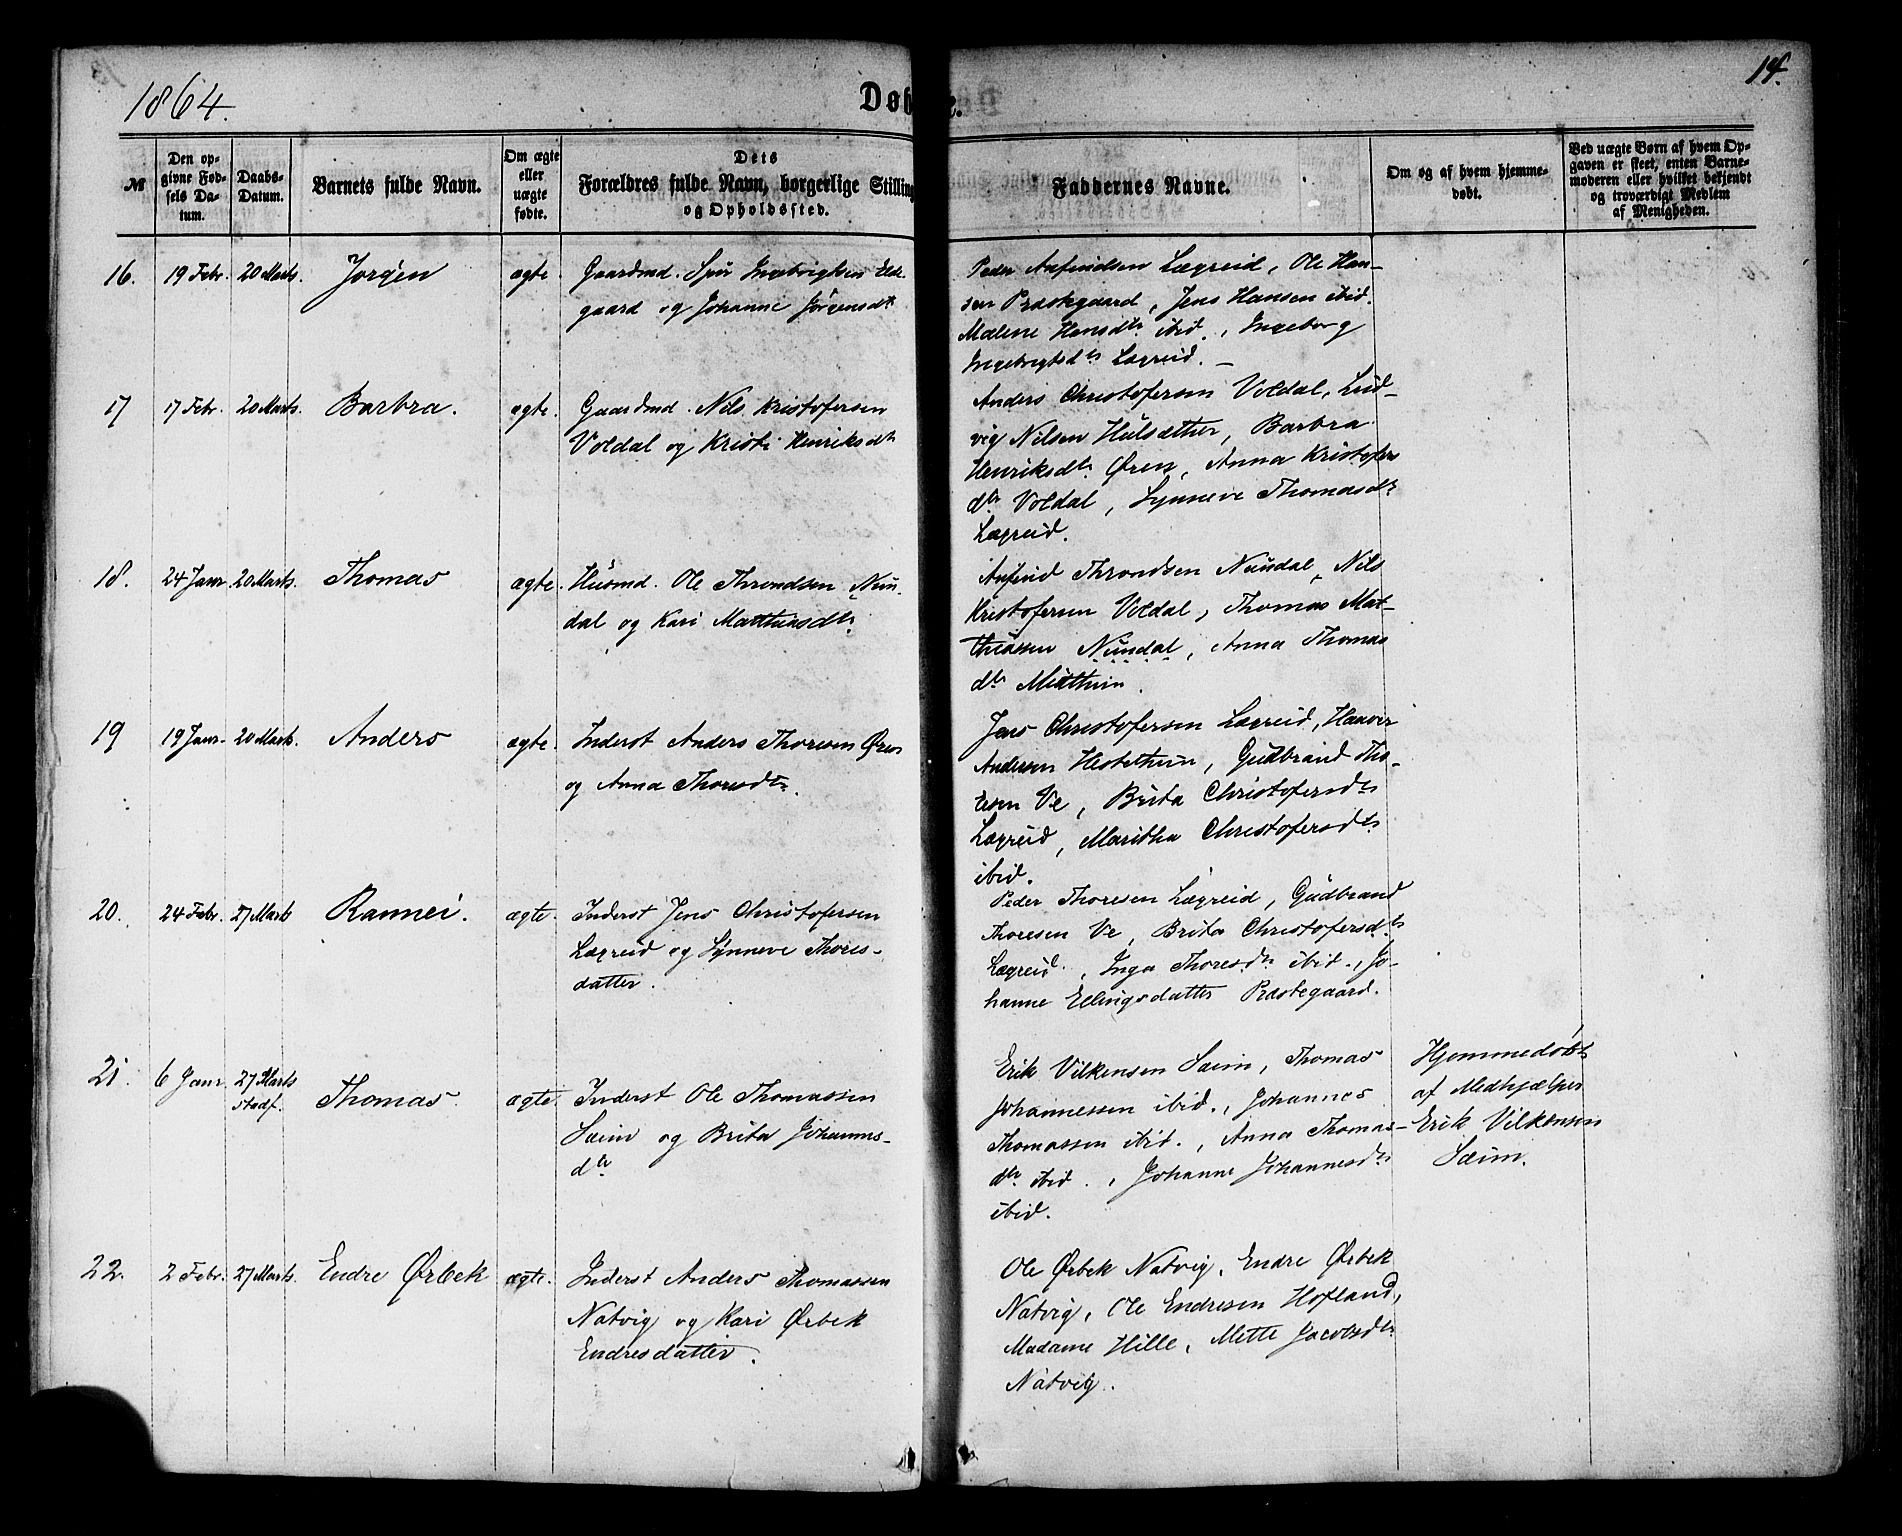 1864.
Døb
e.
14.
№
Den op-
givne Fød-
sels Da-
tum.
Daabs-
Datum.
Barnets fulde Navn.
Om ægte
eller
uægte
fødte.
Dets
Forældres fulde Navn, borgerlige Stilling
og Opholdssted.
Faddernes Navne.
Om og af hvem hjemme-
døbt.
Ved uægte Børn af hvem Op-
gaven er skeet, enten Barne-
moderen eller hvilket bekjendt
og troværdigt Medlem
af Menigheden.
16. 19 Febr. 20 Marts. Jørgen ægte. Gaardmd. Ingebrigtsen
gaard og Johanne Jørgensdtr
Peder Anfindsen Lægreid, Ole Han-
sen Præstegaard, Jens Hansen ibid.
Malene Hansdtr ibid., Ingeborg
Ingebrigtsdtr Lægreid. –
17 17 Febr. 20 Marts. Barbra. ægte. Gaardmd. Nils Kristofersen
Voldal og Kristi Henriksdtr
Anders Christofersen Voldal, Lud-
vig Nilsen Hulsæther, Barbra
Henriksdtr Øren, Anna Kristofers
dtr Voldal, Synneve Thomasdtr
Lægreid.
18. 24 Janr 20 Marts. Thomas ægte. Husmd. Ole Throndsen Nun-
dal og Kari Matthiasdtr.
Anfind Throndsen Nundal, Nils
Kristofersen Voldal, Thomas Mat-
thiassen Nundal, Anna Thomas
dtr Midthun.
19 19 Janr. 20 Marts. Anders ægte. Inderst Anders Thoresen Øren
og Anna Thoresdtr.
Jens Christofersen Lægreid, Haaver
Andersen Hestethun, Gudbrand Tho-
resen Ve, Brita Christofersdtr
Lægreid, Maritha Christofersdtr
ibid.
20. 24 Febr. 27 Marts Rannei. ægte. Inderst Jens Christofersen
Lægreid og Synneve Thores-
datter.
Peder Thoresen Lægreid, Gudbrand
Thoresen Ve, Brita Christofersdtr
Lægreid, Inga Thoresdtr ibid., Jo-
hanne Ellingsdatter Præstegaard.
21. 6 Janr. 27 Marts
stadf. Thomas ægte. Inderst Ole Thomassen
Sæim og Brita Johannes-
dtr
Erik Vilkensen Sæim, Thomas
Johannessen ibid., Johannes
Thomassen ibid., Anna Thomas-
dtr ibid., Johanne Johannesdtr
ibid.
Hjemmedøbt
af Medhjælper
Erik Vilkensen
Sæim.
22. 2 Febr. 27 Marts. Endre Ørbek ægte. Inderst Anders Thomassen
Natvig og Kari Ørbek
Endresdatter.
Ole Ørbek Natvig, Endre Ørbek
Natvig, Ole Endresen Hofland,
Madame Hille, Mette Jacobsdtr
Natvig.